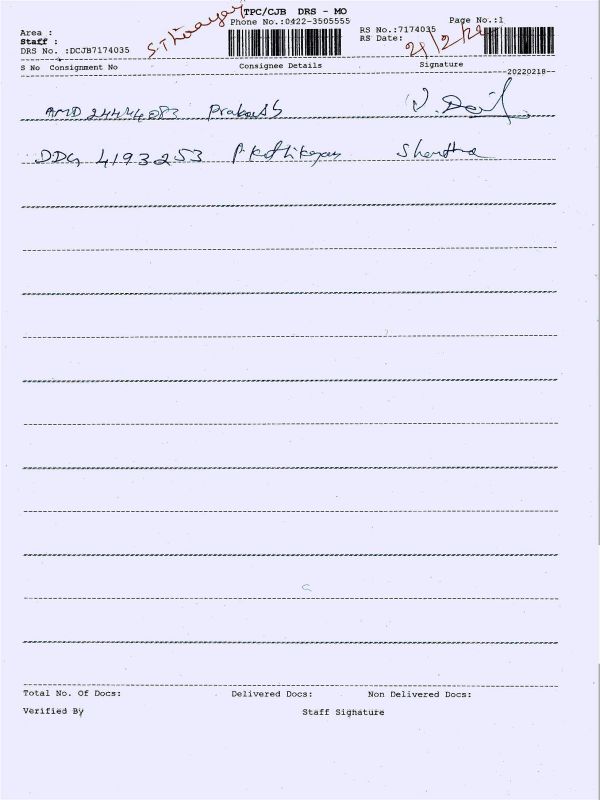 TPC/CJB DRS - MO
Phone No.:0422-3505555
Page No.:1
Area :
Staff :
DRS No. :DCJB7174035
RS No.:7174035
RS Date:
21/2/22
S No Consignment No Consignee Details Signature
20220218
AMD 24444083 Prakash
DDG 4193253 P. Kathikeyan Shantha
Total No. Of Docs: Delivered Docs: Non Delivered Docs:
Verified By Staff Signature